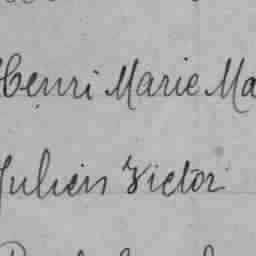 Henri Marie Ma
Julien Victor